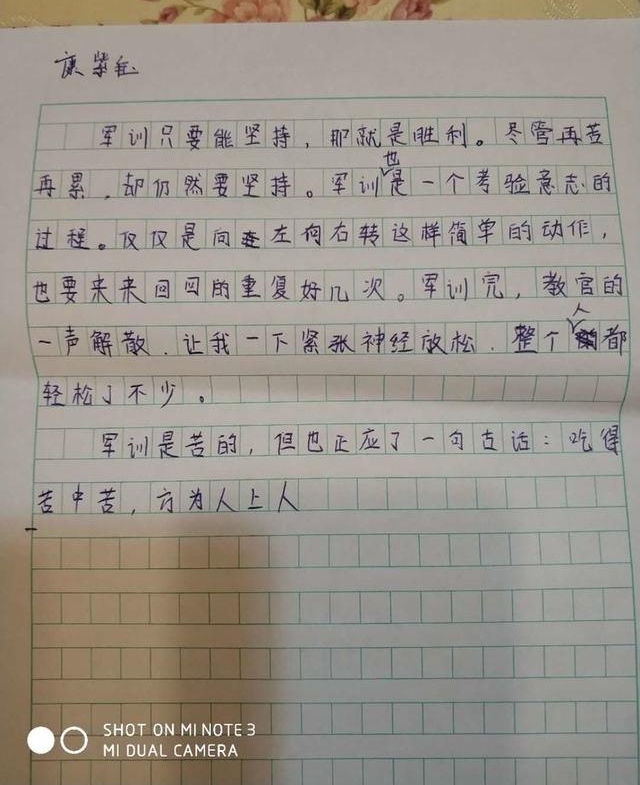 康紫钰
军训只要能坚持，那就是胜利。尽管再苦
再累，却仍然要坚持。军训也是一个考验意志的
过程。仅仅是向左向右转这样简单的动作，
也要来来回回的重复好几次。军训完，教官的
一声解散，让我一下紧张神经放松，整个人都
轻松了不少。
军训是苦的，但也正应了一句古话：吃得
苦中苦，方为人上人
SHOT ON MI NOTE 3
MI DUAL CAMERA